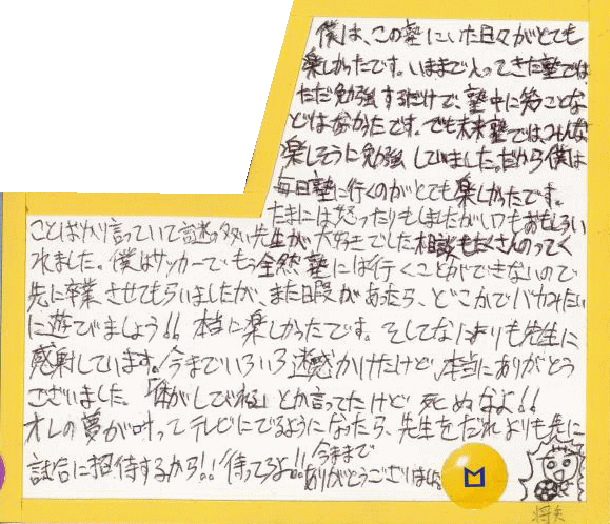 僕は、この塾にいた日々がとても
楽しかったです。いままで入ってきた塾では
ただ勉強するだけで、塾中に笑うことな
どはなかったです。でも未来塾ではみんな
楽しそうに勉強していました。だから僕は
毎日塾に行くのがとても楽しかったです。
たまには怒ったりもしましたがいつもおもしろい
ことばかり言っていて謎の多い先生が大好きでした相談もたくさんのってく
れました。僕はサッカーでもう全然塾には行くことができないので
先に卒業させてもらいましたが、また暇があったら、どこかでバカみたい
に遊びましょう!! 本当に楽しかったです。そしてなによりも先生に
感謝しています。今までいろいろ迷惑かけたけど、本当にありがとう
ございました。「体がしびれる」とか言ってたけど死ぬなよ!!
オレの夢が叶ってテレビにでるようになったら、先生をだれよりも先に
試合に招待するから!! 待ってろよ!! 今まで
ありがとうございました
M